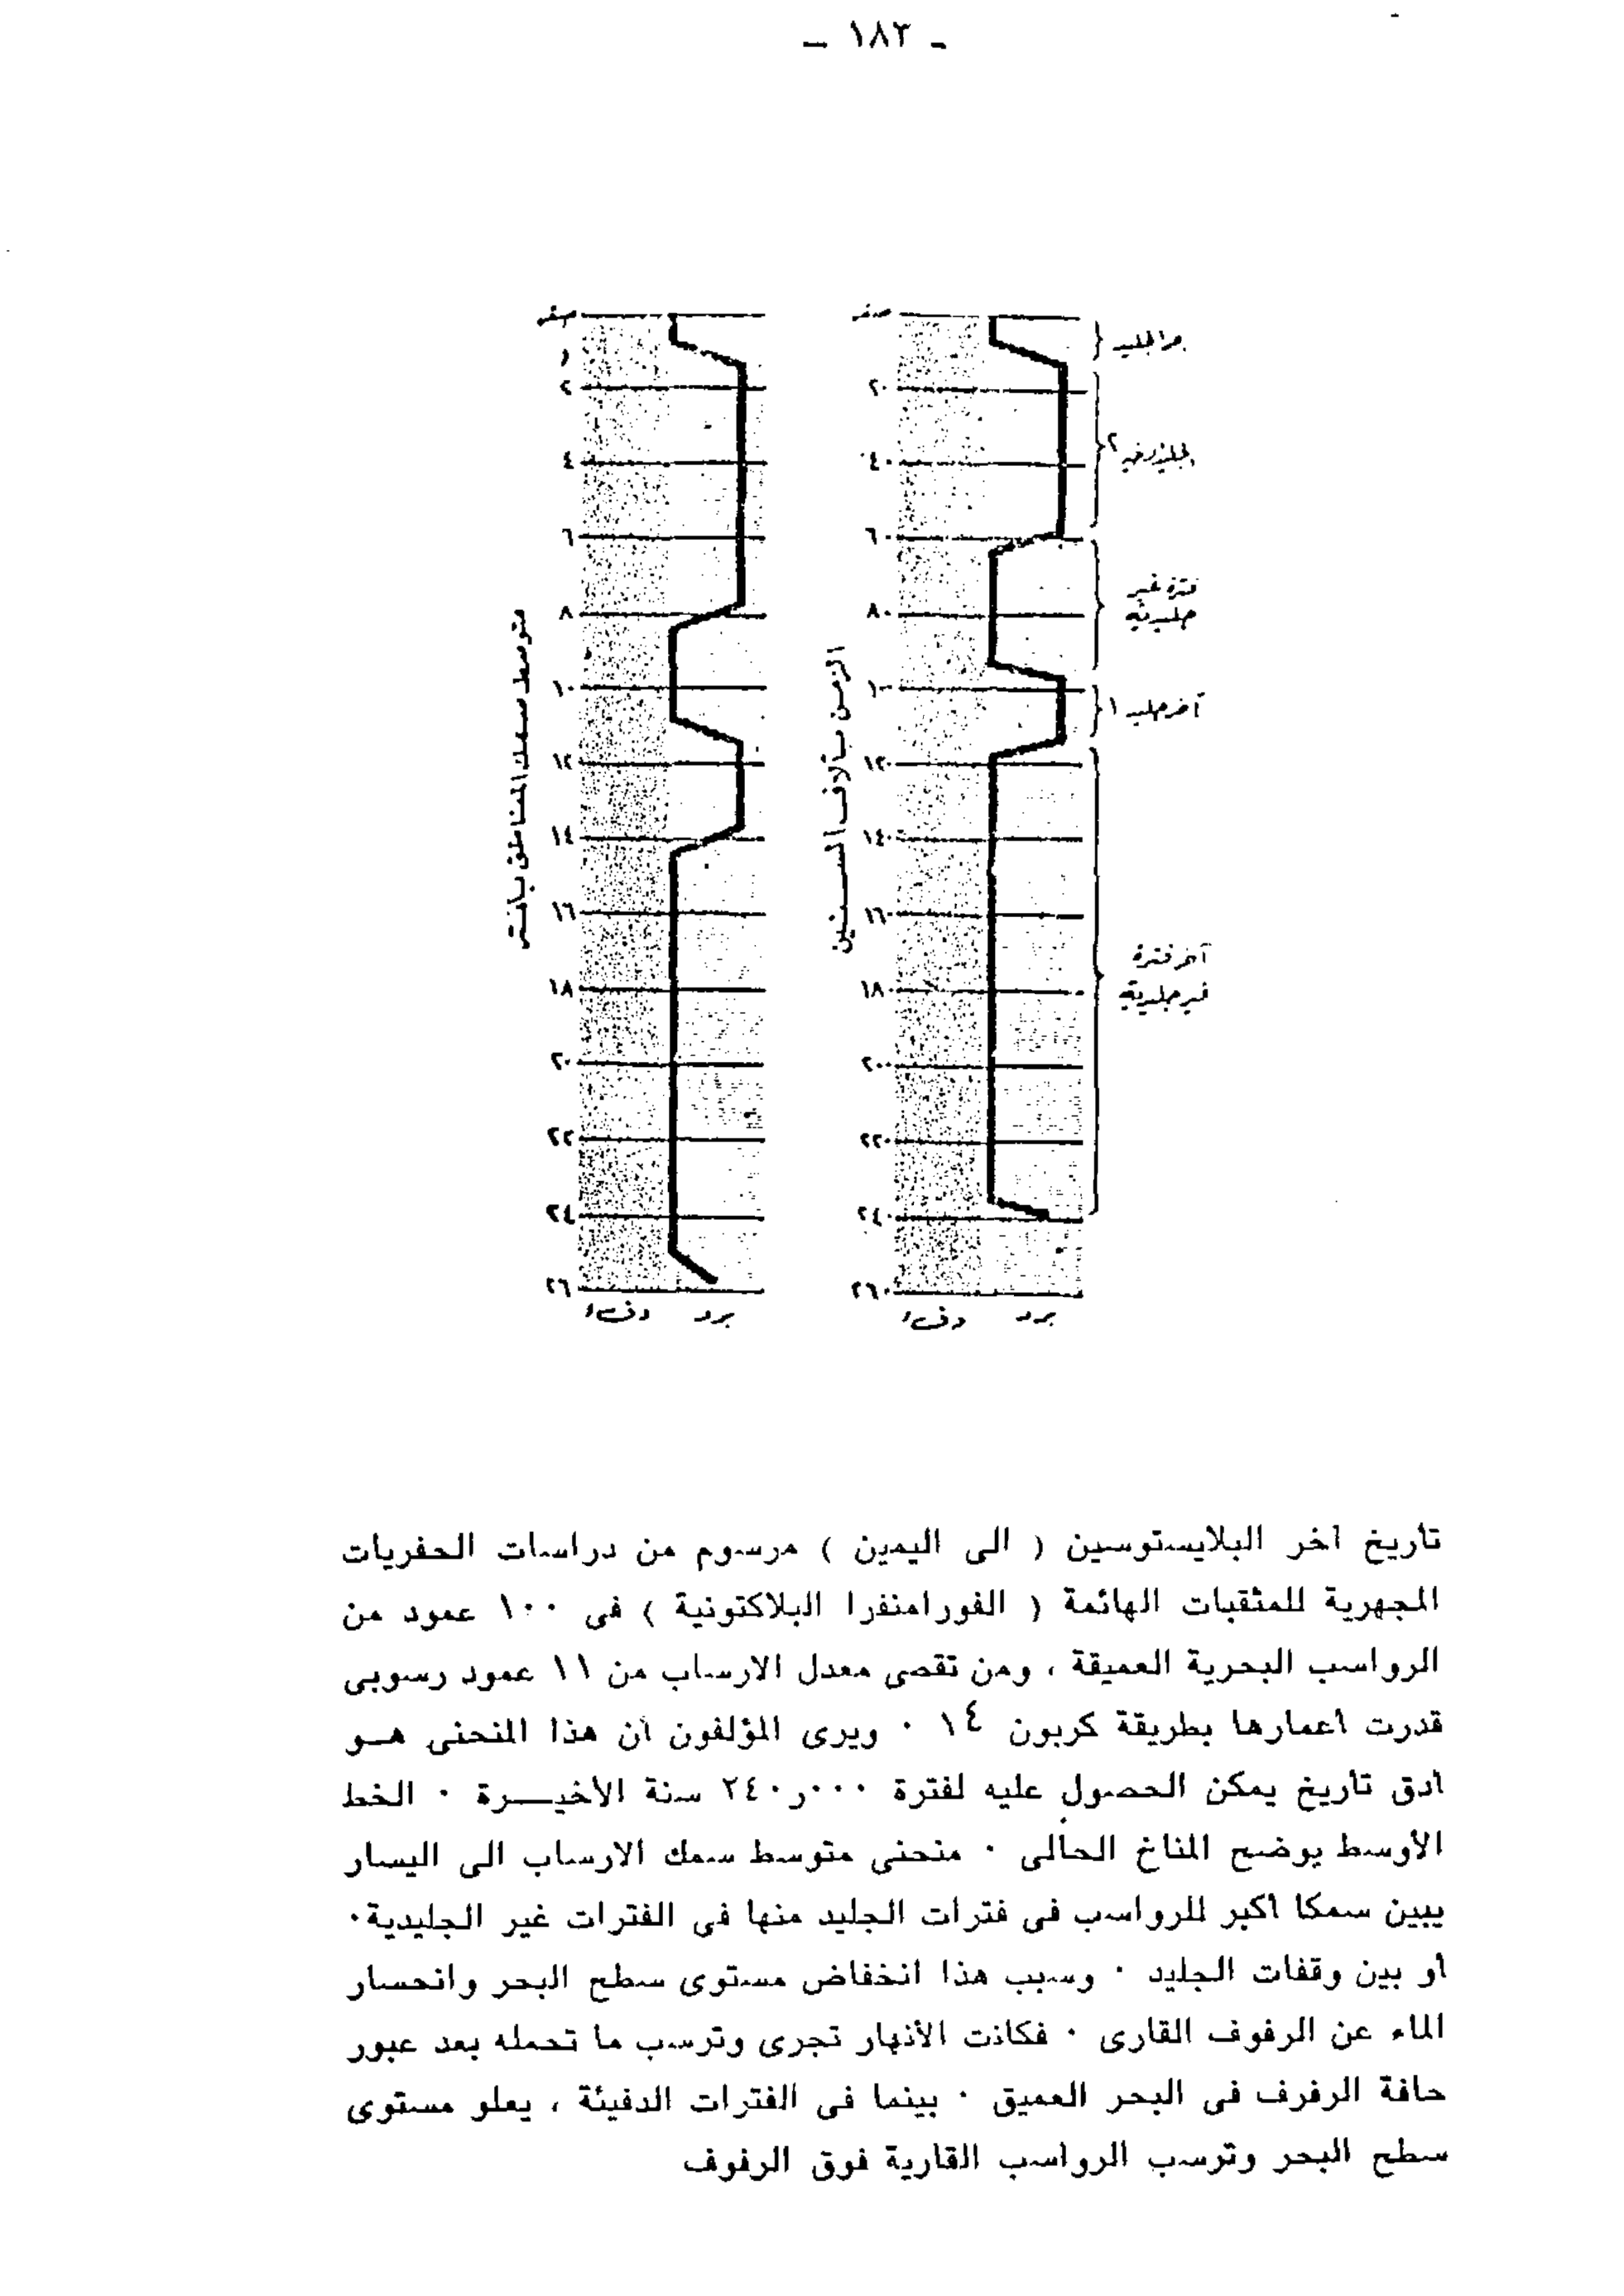 ـ ١٨٣ ـ
صفر
٢
٤
٦
٨
١٠
١٢
١٤
١٦
١٨
٢٠
٢٢
٢٤
٢٦
دفء برد
متوسط سمك المناطق بالمتر
صفر
٢٠
٤٠
٦٠
٨٠
١٠٠
١٢٠
١٤٠
١٦٠
١٨٠
٢٠٠
٢٢٠
٢٤٠
٢٦٠
دفء برد
الزمن بآلاف السنين
٢
فترة غير
جليدية
آخر جليد ١
آخر فترة
غير جليدية
تأريخ آخر البلايستوسين ( الى اليمين ) مرسوم من دراسات الحفريات
المجهرية للمثقبات الهائمة ( الفورامنفرا البلاكتونية ) فى ١٠٠ عمود من
الرواسب البحرية العميقة ، ومن تقصى معدل الارساب من ١١ عمود رسوبى
قدرت أعمارها بطريقة كربون ١٤ ٠ ويرى المؤلفون أن هذا المنحنى هــو
أدق تأريخ يمكن الحصول عليه لفترة ٠٠٠ر٢٤٠ سنة الأخيــرة ٠ الخط
الأوسط يوضح المناخ الحالى ٠ منحنى متوسط سمك الارساب الى اليسار
يبين سمكا أكبر للرواسب فى فترات الجليد منها فى الفترات غير الجليدية٠
أو بين وقفات الجليد ٠ وسبب هذا انخفاض مستوى سطح البحر وانحسار
الماء عن الرفوف القارى ٠ فكانت الأنهار تجرى وترسب ما تحمله بعد عبور
حافة الرفرف فى البحر العميق ٠ بينما فى الفترات الدفيئة ، يعلو مستوى
سطح البحر وترسب الرواسب القارية فوق الرفوف